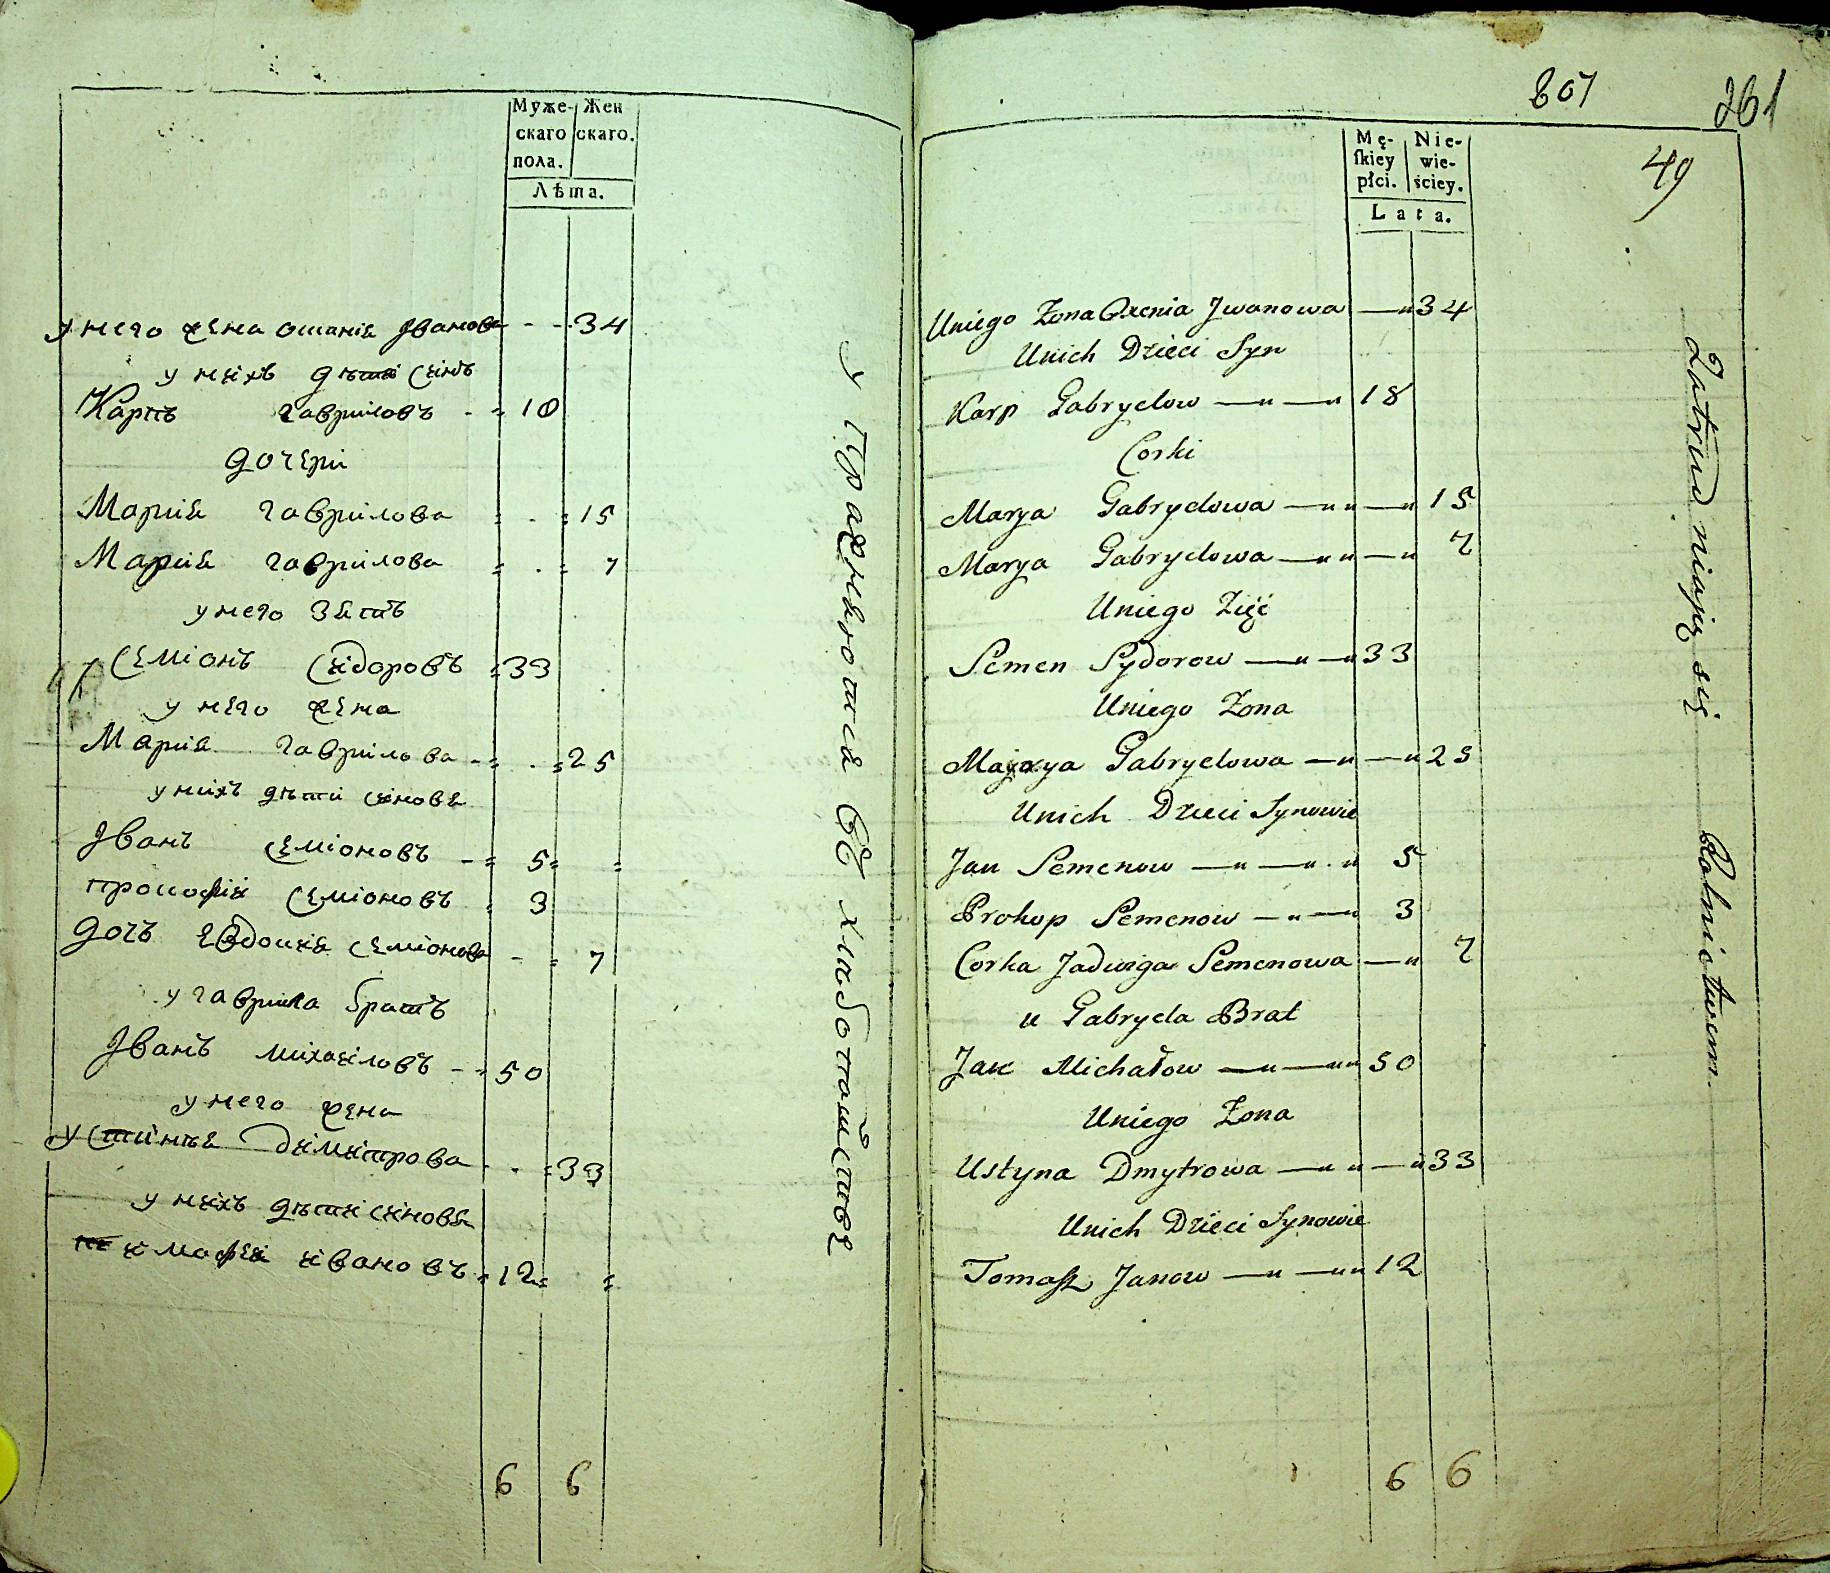 Муже-
скаго
пола.
Жен
скаго.
Лѣта.
у него жена Іванова - - 34
у нихъ дѣти синъ
Карпъ гавриловъ - = 18
дочери
Мария гаврилова = . = 15
Мария гаврилова = . = 7
у него зять
Семіонъ Сидоровъ = 33
у него жена
Мария гаврилова - = . = 25
у нихъ дѣти синовя
Іванъ Семіоновъ - = 5 = =
прокофій Семіоновъ = 3
дочъ Евдокия Семіонова - = 7
у гаврила братъ
Іванъ михайловъ - = 50
у него жена
Устинья димитрова - . = 33
у нихъ дѣти синовя
тимофей ивановъ = 12 = =
6 6
упражняютися въ хлѣбопашствѣ
807
261
49
Mę-
skiey
płci.
Nie-
wie-
ściey.
Lata.
Uniego Zona Oxenia Jwanowa —„ 34
Unich Dzieci Syn
Karp Gabryelow —„ —„ 18
Corki
Marya Gabryelowa —„ „ —„ 15
Marya Gabryelowa —„ „ —„ 7
Uniego Zięć
Semen Sydorow —„ —„ 33
Uniego Zona
Marya Gabryelowa —„ —„ 25
Unich Dzieci Synowie
Jan Semenow —„ —„ „ 5
Prokop Semenow —„ —„ 3
Corka Jadwiga Semenowa —„ 7
u Gabryela Brat
Jan Michałow —„ —„ „ 50
Uniego Zona
Ustyna Dmytrowa —„ „ —„ 33
Unich Dzieci Synowie
Tomasz Janow —„ —„ „ 12
6 6
Zatrudniają się Rolnictwem